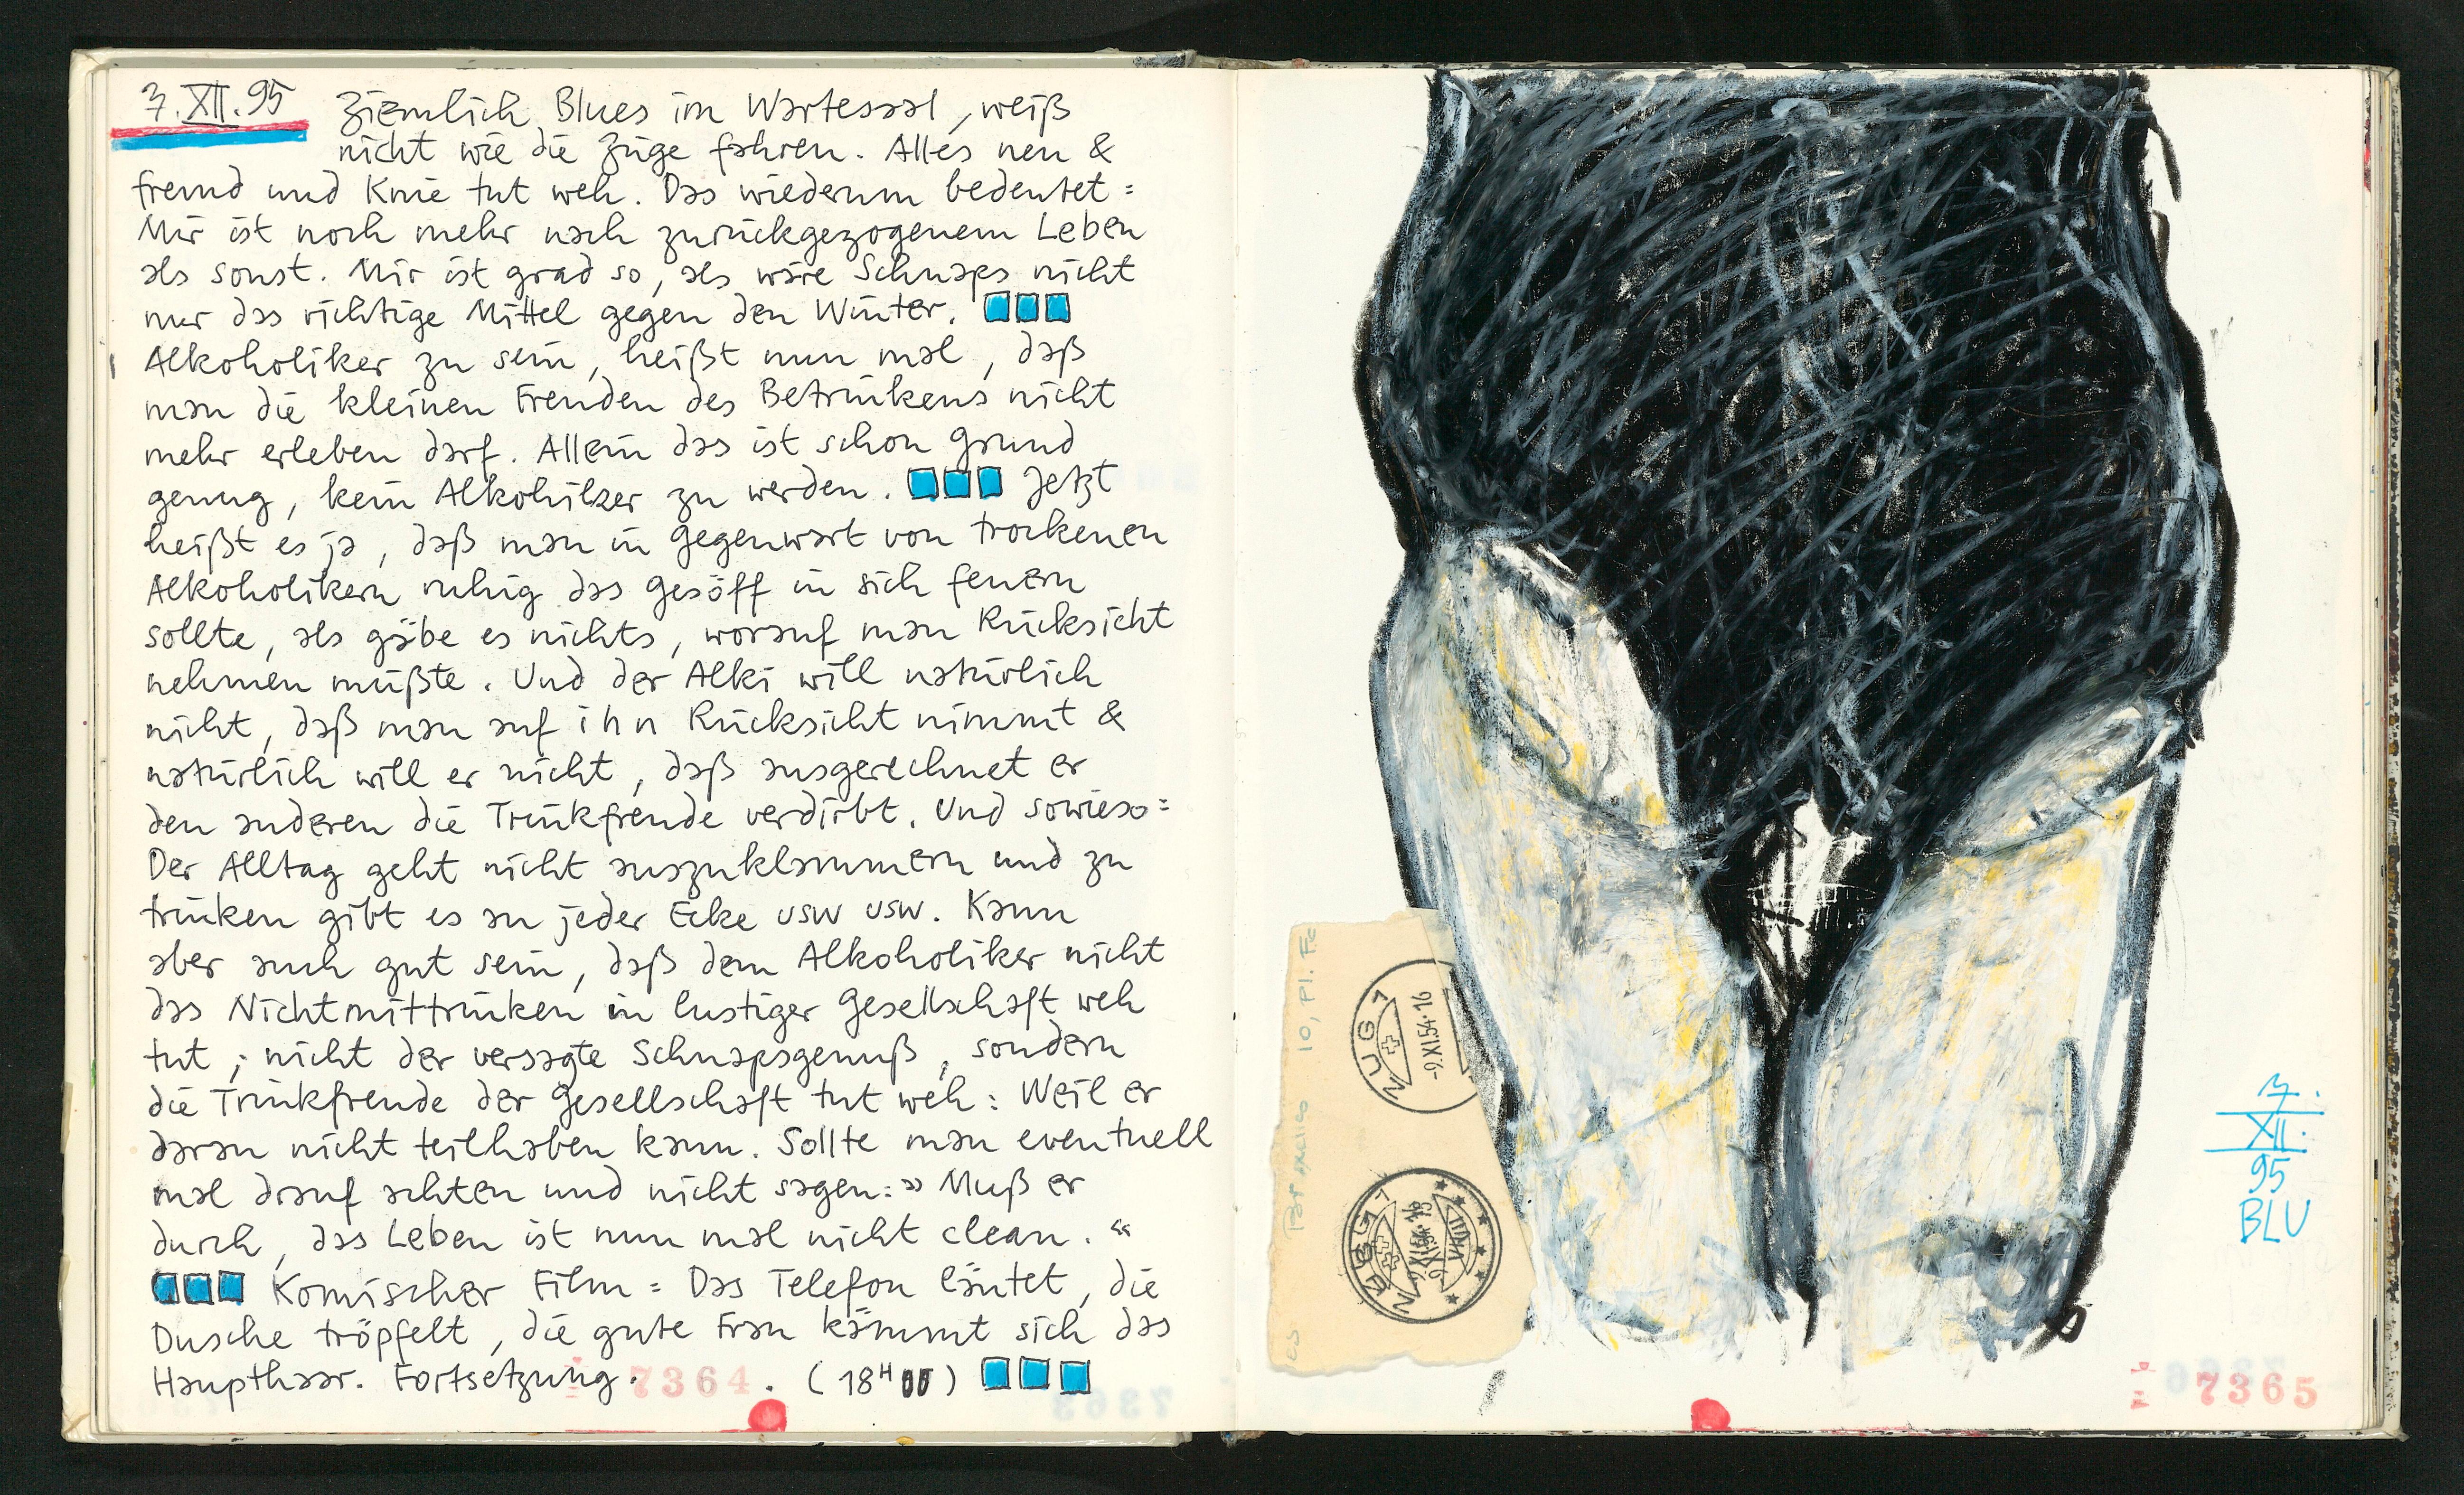 7.XII.95
Ziemlich Blues im Wartesaal, weiß
nicht wie die Züge fahren. Alles neu &
fremd und Knie tut weh. Das wiederum bedeutet:
Mir ist noch mehr nach zurückgezogenem Leben
als sonst. Mir ist grad so, als wäre Schnaps nicht
nur das richtige Mittel gegen den Winter.
Alkoholiker zu sein, heißt nun mal, daß
man die kleinen Freuden des Betrinkens nicht
mehr erleben darf. Allein das ist schon Grund
genug, kein Alkohilker zu werden. Jetzt
heißt es ja, daß man in Gegenwart von trockenen
Alkoholikern ruhig das Gesöff in sich feuern
sollte, als gäbe es nichts, worauf man Rücksicht
nehmen müßte. Und der Alki will natürlich
nicht, daß man auf ihn Rücksicht nimmt &
natürlich will er nicht, daß ausgerechnet er
den anderen die Trinkfreude verdirbt. Und sowieso:
Der Alltag geht nicht auszuklammern und zu
trinken gibt es an jeder Ecke usw usw. Kann
aber auch gut sein, daß dem Alkoholiker nicht
das Nichtmittrinken in lustiger Gesellschaft weh
tut; nicht der versagte Schnapsgenuß, sondern
die Trinkfreude der Gesellschaft tut weh: Weil er
daran nicht teilhaben kann. Sollte man eventuell
mal drauf achten und nicht sagen: »Muß er
durch, das Leben ist nun mal nicht clean.«
Komischer Film: Das Telefon läutet, die
Dusche tröpfelt, die gute Frau kämmt sich das
Haupthaar. Fortsetzung. 7364. (18H00)
10, Pl. Fe
ZUG 1
-9.XI.54-16
ZUG 1
7.
XII.
95
BLU
7365